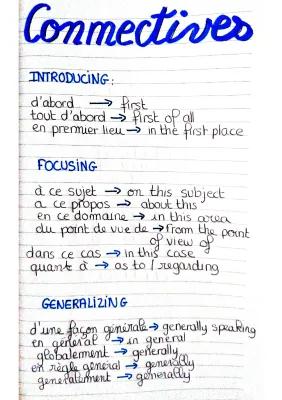 Connectives
INTRODUCING:
d'abord → first
tout d'abord → first of all
en premier lieu → in the first place
FOCUSING
à ce sujet → on this subject
a ce propos → about this
en ce domaine → in this area
du point de vue de → from the point
of view of
dans ce cas → in this case
quant à → as to / regarding
GENERALIZING
d'une façon générale → generally speaking
en général → in général
globalement → generally
en règle général → generally
generalement → generally